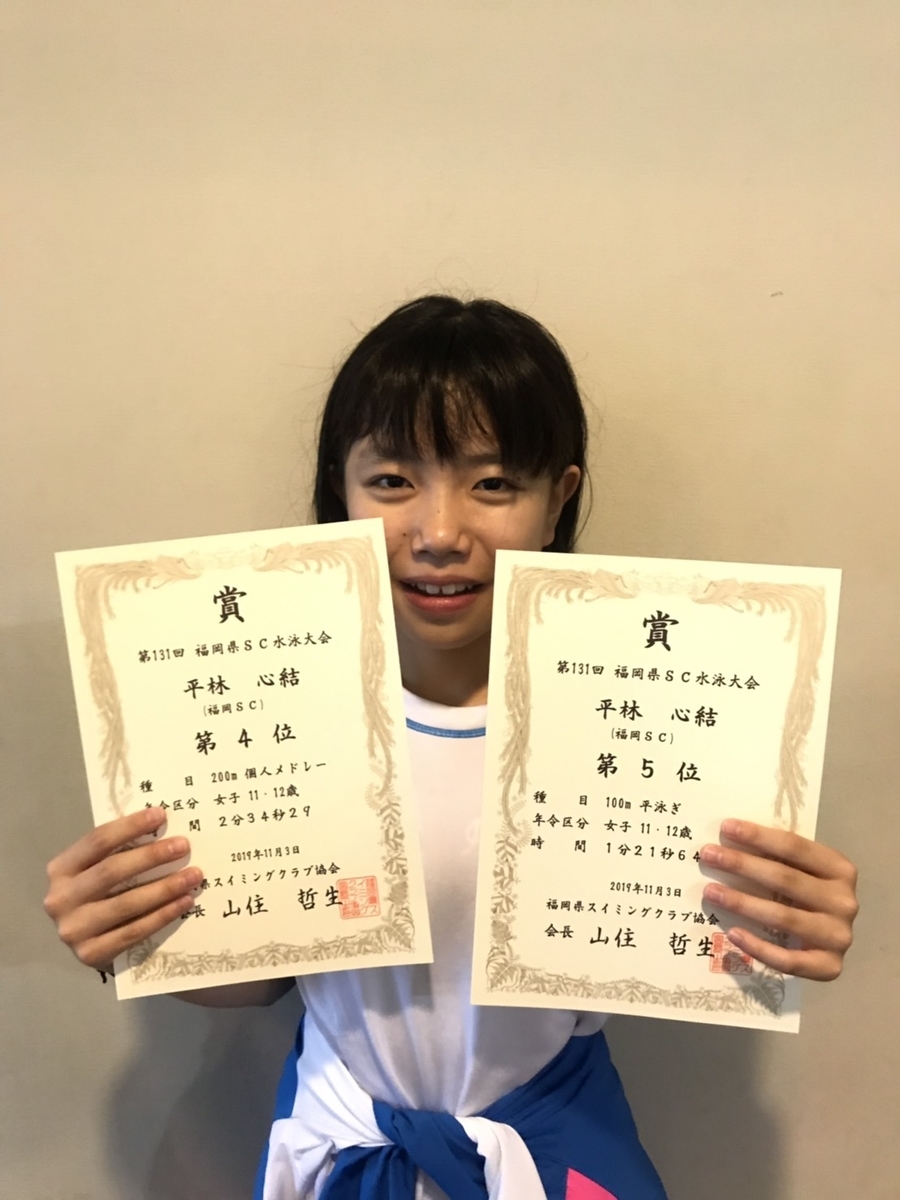 賞
第131回 福岡県SC水泳大会
平林 心結
(福岡SC)
第 4 位
種 目 200m 個人メドレー
年令区分 女子 11・12歳
間 2分34秒29
2019年11月3日
県スイミングクラブ協会
会長 山住 哲生
賞
第131回 福岡県SC水泳大会
平林 心結
(福岡SC)
第 5 位
種 目 100m 平泳ぎ
年令区分 女子 11・12歳
時 間 1分21秒64
2019年11月3日
福岡県スイミングクラブ協会
会長 山住 哲生